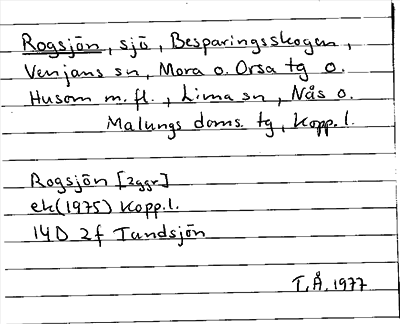 Rogsjön, sjö, Besparingsskogen,
Venjans sn, Mora o. Orsa tg o.
Husom m. fl., Lima sn, Nås o.
Malungs doms. tg, Kopp. l.
Rogsjön [2ggr]
ek (1975) Kopp. l.
14D 2f Tandsjön
T. Å. 1977